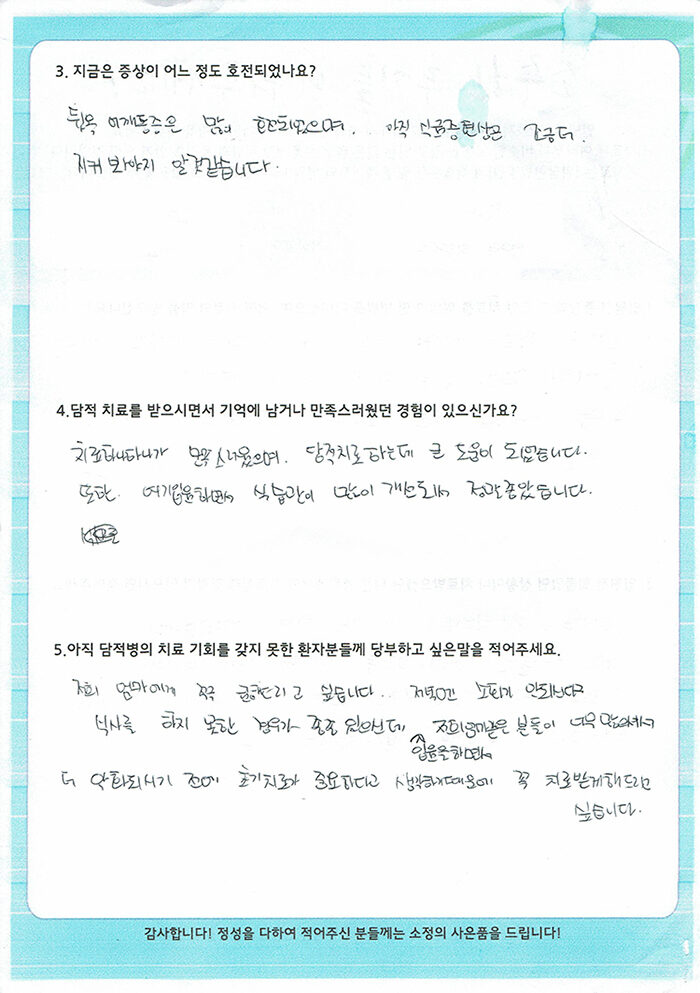 3. 지금은 증상이 어느 정도 호전되었나요?
뒷목 어깨통증은 많이 호전되었으며.. 아직 식곤증현상은 조금더.
지켜 봐야지 알것같습니다.
4.담적 치료를 받으시면서 기억에 남거나 만족스러웠던 경험이 있으신가요?
치료하나하나가 만족스러웠으며. 담적치료하는데 큰 도움이 되었습니다.
또한. 여기입원하면서 식습관이 많이 개선되서 정말좋았습니다.
5.아직 담적병의 치료 기회를 갖지 못한 환자분들께 당부하고 싶은말을 적어주세요.
저희 엄마에게 꼭 권해드리고 싶습니다.. 저녁엔 소화가 안되신다고
식사를 하지 못한 경우가 종종 있으신데 분들이 너무 많으셔서
입원을하면서
더 악화되시기 전에 초기치료가 중요하다고 생각하기때문에 꼭 치료받게해드리고
싶습니다.
감사합니다! 정성을 다하여 적어주신 분들께는 소정의 사은품을 드립니다!